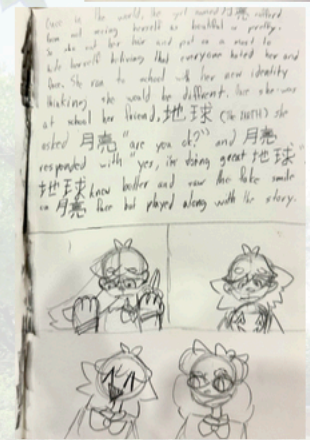 in the world, the girl named 月亮 suffered
from not seeing herself as beautiful or pretty.
So she cut her hair and put on a mask to
hide herself believing that everyone hated her and
face. She ran to school with her new identity
thinking she would be different. she was
at school her friend, 地球 (the EARTH) she
asked 月亮 "are you ok?" and 月亮
responded with "yes, i'm doing great 地球"
地球 knew better and saw the fake smile
on 月亮 face but played along with the story.